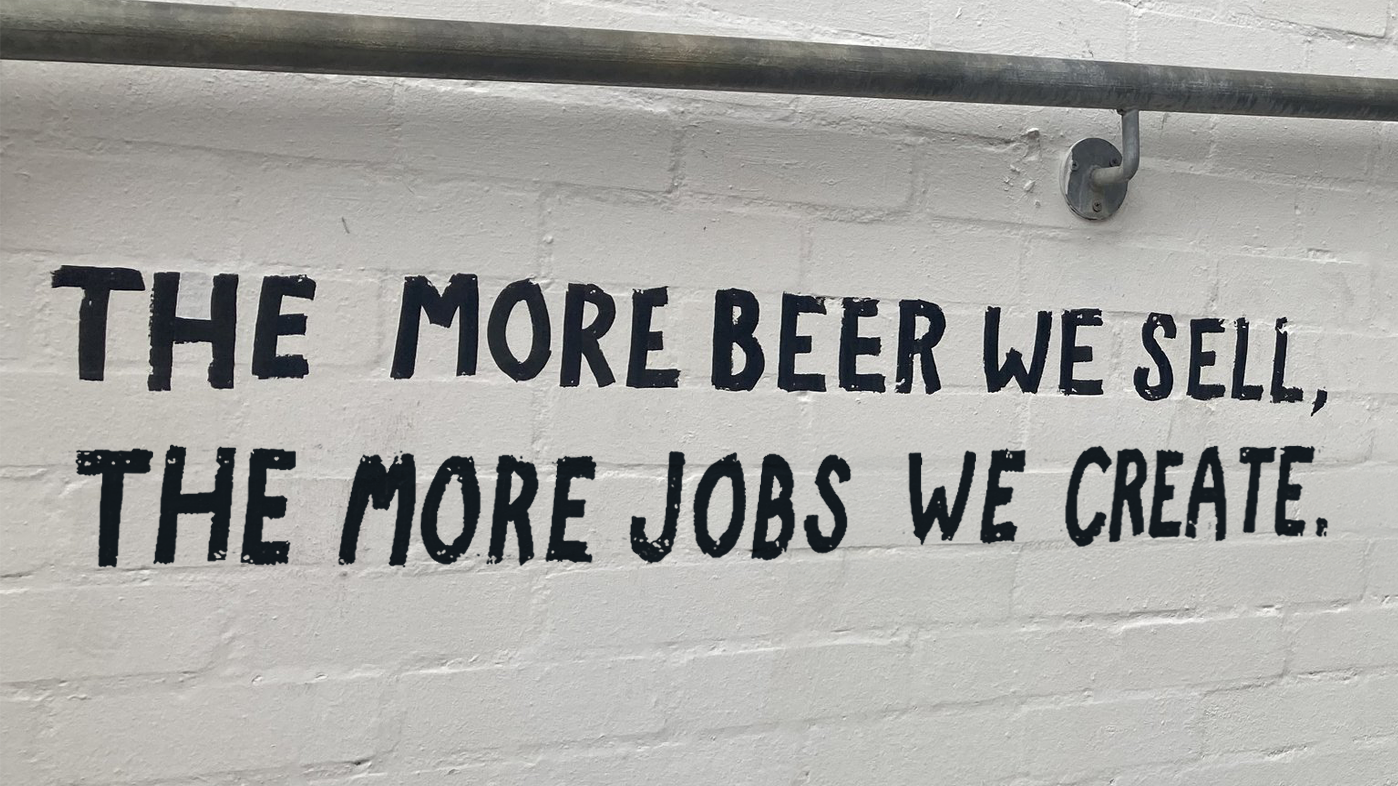 THE MORE BEER WE SELL,
THE MORE JOBS WE CREATE.